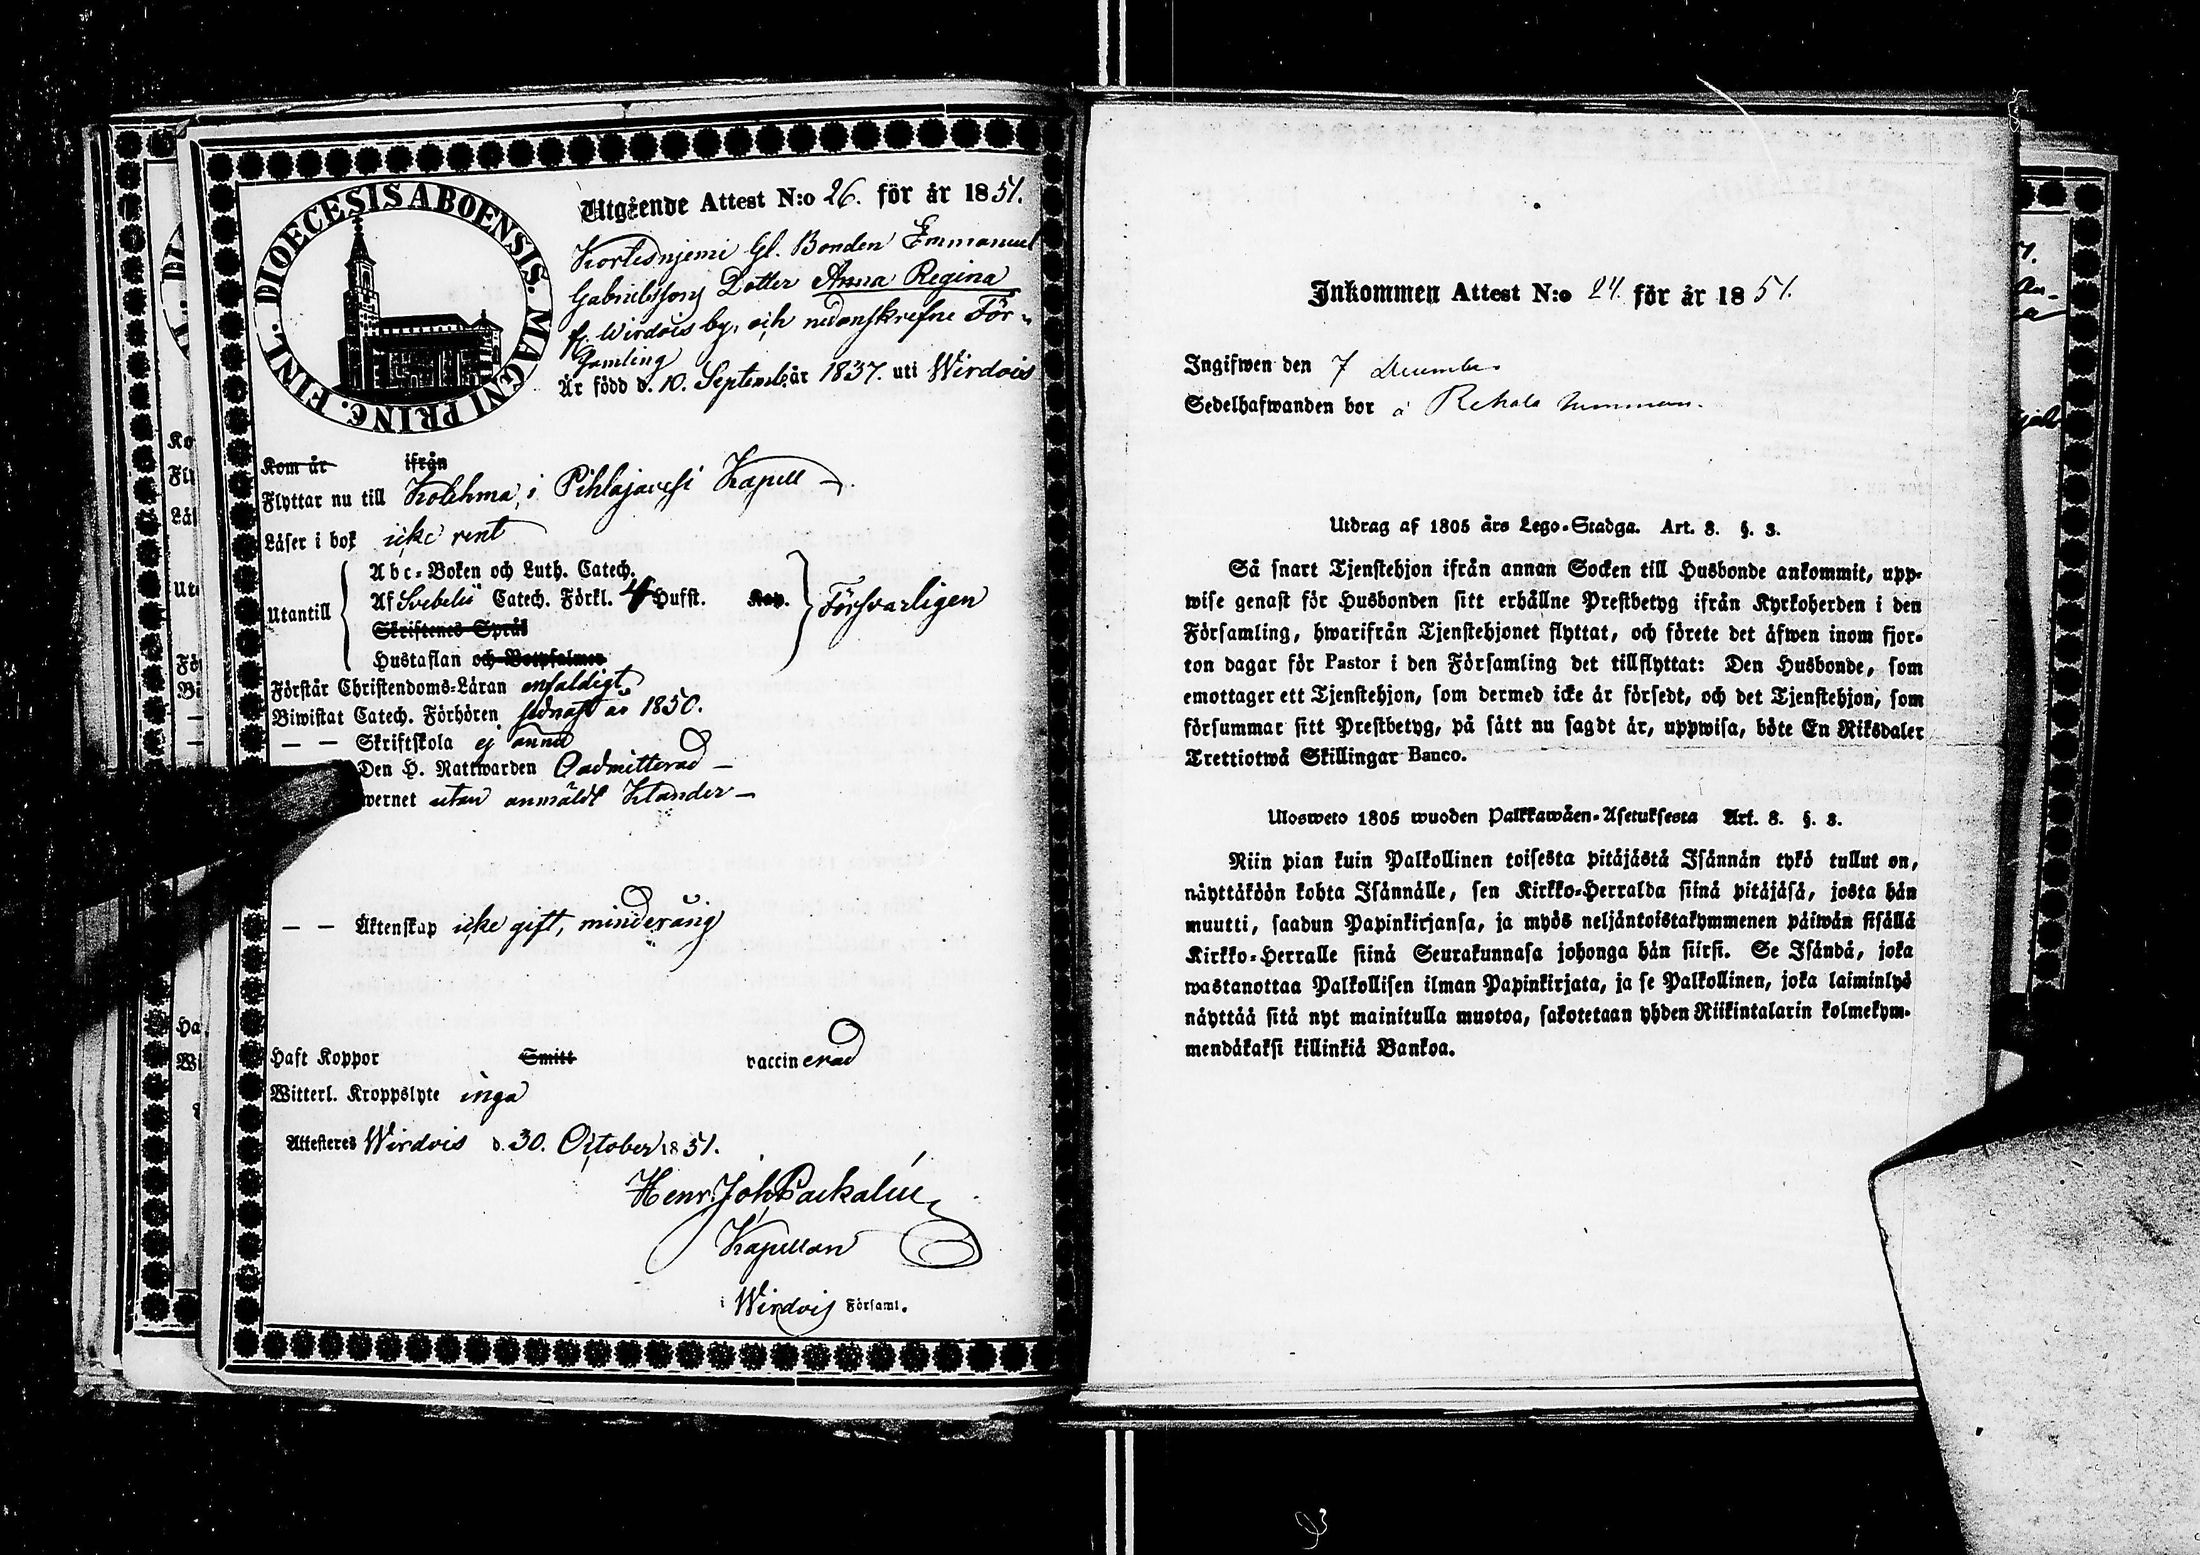 DIOECESIS ABOENSIS. MAGNI PRINC. FINL.
Utgående Attest N:o 26. för år 1851.
Kortesnjemi Gl. Bonden Emmanuel
Gabrielssons Dotter Anna Regina
fr. Wirdois by, och nedanskrefne För-
samling
Är född d. 10. September år 1837. uti Wirdois
Kom år ifrån
Flyttar nu till Kolehma, i Pihlajavesi Kapell
Läser i bok icke rent
Utantill
Abc-Boken och Luth. Catech.
Af Svebelii Catech. Förkl. 4 Hufst. Kap.
Försvarligen
Skriftenes Språk
Hustaflan och Botpsalmer
Förstår Christendoms-Läran enfaldigt
Biwistat Catech. Förhören sednast år 1850.
— — Skriftskola ej ännu
Den H. Nattwarden Oadmitterad —
wernet utan anmäldt klander —
— — Äktenskap icke gift, minderårig
Haft Koppor Smitt vaccinerad
Witterl. Kroppslyte inga
Attesteres Wirdois d. 30. October 1851.
Henr. Joh.
Kapellan
i Wirdois Församl.
Inkommen Attest N:o 24. för år 1851.
Ingifwen den 7 December
Sedelhafwanden bor å
Utdrag af 1805 års Lego-Stadga. Art. 8. §. 3.
Så snart Tjenstehjon ifrån annan Socken till Husbonde ankommit, upp-
wise genast för Husbonden sitt erhållne Prestbetyg ifrån Kyrkoherden i den
Församling, hwarifrån Tjenstehjonet flyttat, och förete det äfwen inom fjor-
ton dagar för Pastor i den Församling det tillflyttat: Den Husbonde, som
emottager ett Tjenstehjon, som dermed icke är försedt, och det Tjenstehjon, som
försummar sitt Prestbetyg, på sätt nu sagdt är, uppwisa, böte En Riksdaler
Trettiotwå Skillingar Banco.
Ulosweto 1805 wuoden Palkkawäen-Asetuksesta Art. 8. §. 3.
Niin pian kuin Palkollinen toisesta pitäjästä Isännän tykö tullut on,
näyttäköön kohta Isännälle, sen Kirkko-Herralda siinä pitäjäsä, josta hän
muutti, saadun Papinkirjansa, ja myös neljäntoistakymmenen päiwän sisällä
Kirkko-Herralle siinä Seurakunnasa johonga hän siirsi. Se Isändä, joka
wastanottaa Palkollisen ilman Papinkirjata, ja se Palkollinen, joka laiminlyö
näyttää sitä nyt mainitulla muotoa, sakotetaan yhden Riikintalarin kolmekym-
mendäkaksi killinkiä Bankoa.